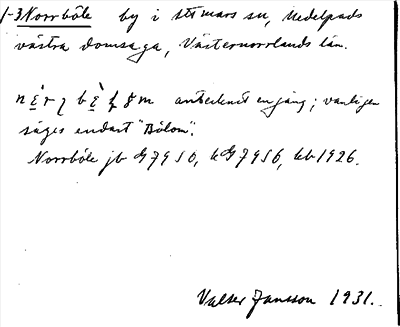 1-3 Norrböle by i Attmars sn, Medelpads
västra domsaga, Västernorrlands län.
antecknat en gång; vanligen
säges endast "Bölom".
Norrböle jb 1950, kb 1926.
Valter Jansson 1931.